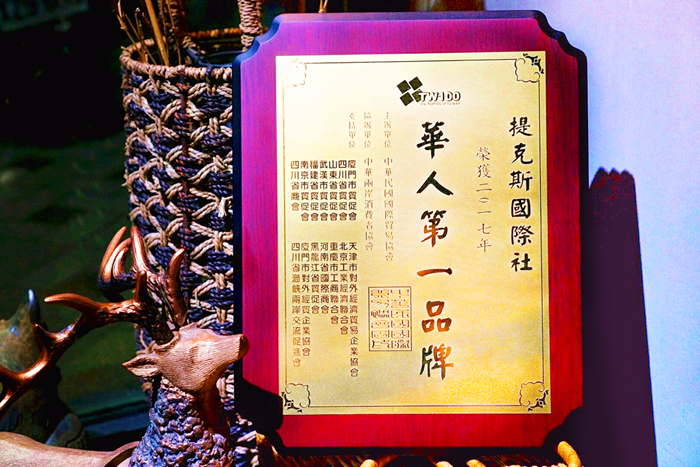 TW100
the Top100 of Taiwan
提克斯國際社
榮獲二〇一七年
華人第一品牌
主辦單位 中華民國國際貿易協會
協辦單位 中華兩岸消費者協會
支持單位
廈門市貿促會
四川省貿促會
山東省貿促會
武漢市貿促會
福建省貿促會
南京市貿促會
四川省商會
天津市對外經濟貿易企業協會
北京工業經濟聯合會
重慶市工商聯合會
河南省國際商會
黑龍江省貿促會
廈門市對外經貿企業協會
四川省海峽兩岸交流促進會